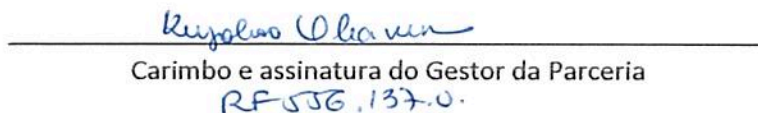 Carimbo e assinatura do Gestor da Parceria
RF 556.137.0.